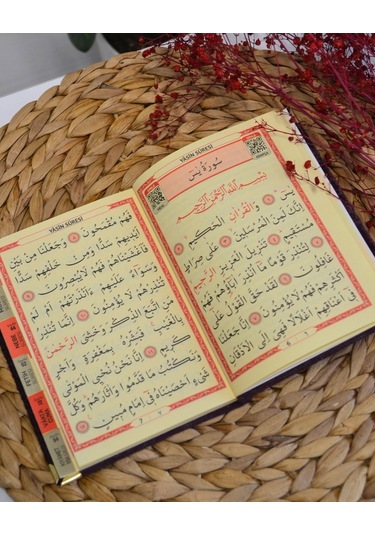 YÂSİN SÛRESİ
سُورَةُ يٰسٓ
بِسْمِ اللّٰهِ الرَّحْمٰنِ الرَّحِيمِ
يٰسٓ ﴿١﴾ وَالْقُرْاٰنِ الْحَكِيمِ ﴿٢﴾
اِنَّكَ لَمِنَ الْمُرْسَلِينَ ﴿٣﴾ عَلٰى صِرَاطٍ
مُسْتَقِيمٍ ﴿٤﴾ تَنْزِيلَ الْعَزِيزِ الرَّحِيمِ ﴿٥﴾
لِتُنْذِرَ قَوْمًا مَٓا اُنْذِرَ اٰبَٓاؤُ۬هُمْ فَهُمْ
غَافِلُونَ ﴿٦﴾ لَقَدْ حَقَّ الْقَوْلُ عَلٰٓى
اَكْثَرِهِمْ فَهُمْ لَا يُؤْمِنُونَ ﴿٧﴾ اِنَّا جَعَلْنَا
ف۪ٓي اَعْنَاقِهِمْ اَغْلَالًا فَهِيَ اِلَى الْاَذْقَانِ
٦
YÂSİN SÛRESİ
فَهُمْ مُقْمَحُونَ ﴿٨﴾ وَجَعَلْنَا مِنْ بَيْنِ
اَيْدِيهِمْ سَدًّا وَمِنْ خَلْفِهِمْ سَدًّا
فَاَغْشَيْنَاهُمْ فَهُمْ لَا يُبْصِرُونَ ﴿٩﴾
وَسَوَٓاءٌ عَلَيْهِمْ ءَاَنْذَرْتَهُمْ اَمْ لَمْ
تُنْذِرْهُمْ لَا يُؤْمِنُونَ ﴿١٠﴾ اِنَّمَا تُنْذِرُ
مَنِ اتَّبَعَ الذِّكْرَ وَخَشِيَ الرَّحْمٰنَ
بِالْغَيْبِۚ فَبَشِّرْهُ بِمَغْفِرَةٍ وَاَجْرٍ
كَرِيمٍ ﴿١١﴾ اِنَّا نَحْنُ نُحْيِ الْمَوْتٰى
وَنَكْتُبُ مَا قَدَّمُوا وَاٰثَارَهُمْۜ وَكُلَّ
شَيْءٍ اَحْصَيْنَاهُ ف۪ٓي اِمَامٍ مُب۪ينٍ ﴿١٢﴾
٧